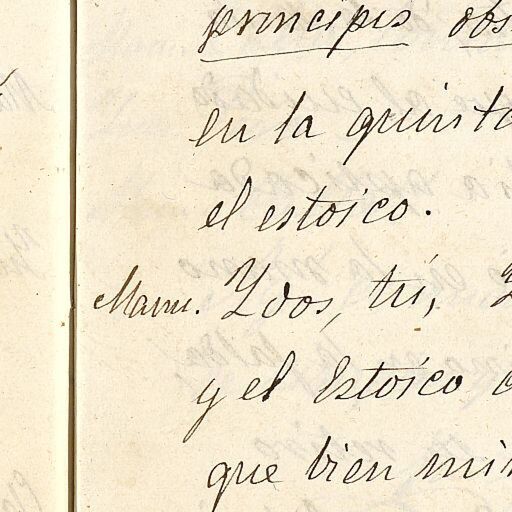 principis obs
en la quinta
el estoico.
Manu. Y dos, tú, Y
y el Estoico
que bien mir